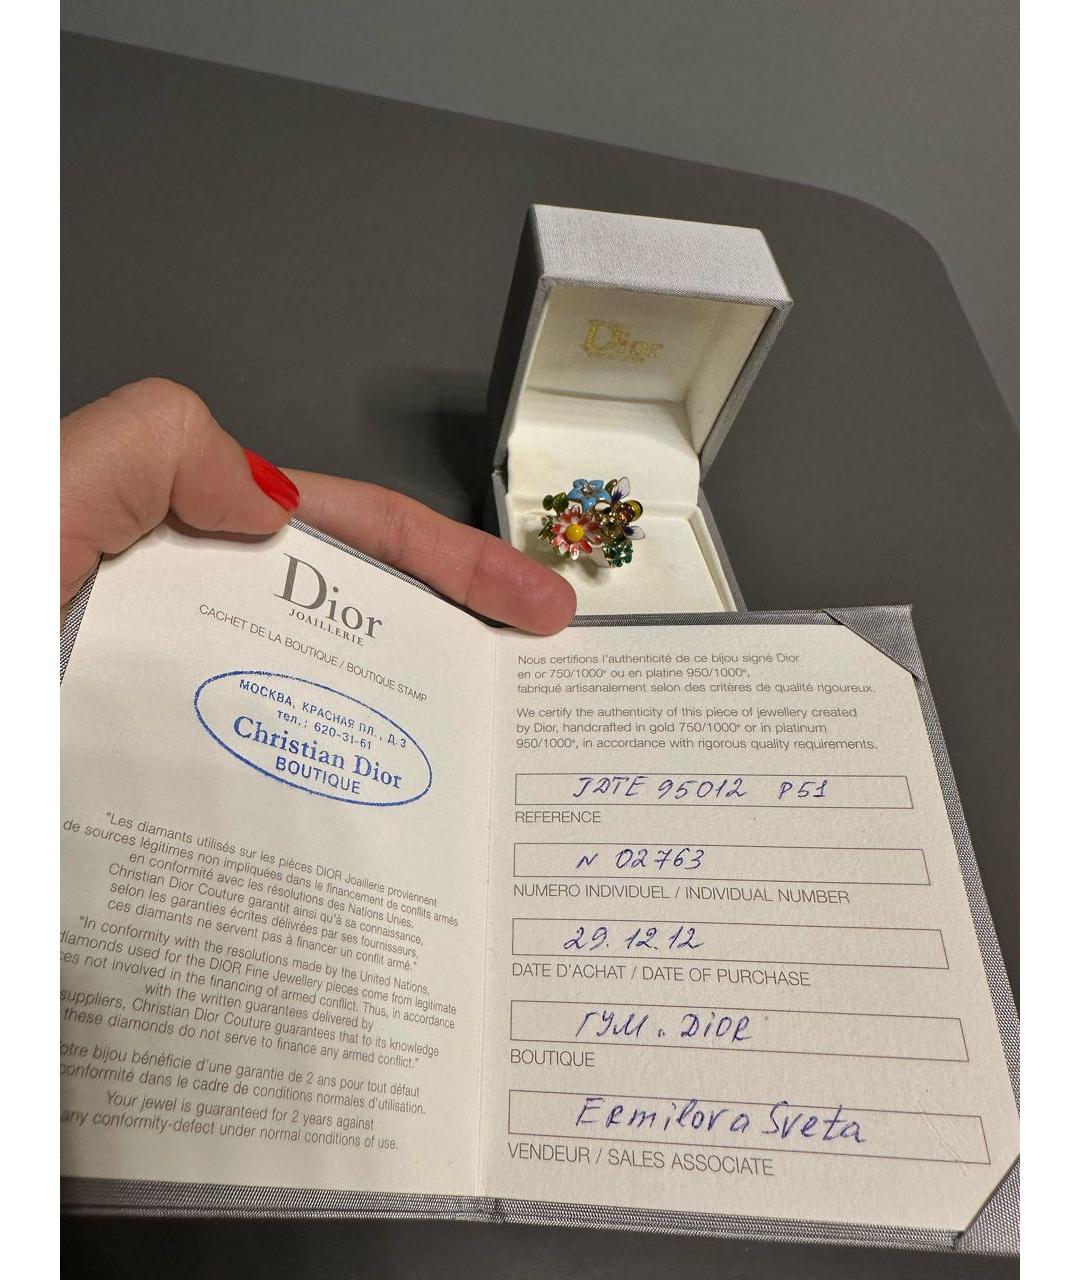 Dior
Dior
JOAILLERIE
CACHET DE LA BOUTIQUE / BOUTIQUE STAMP
МОСКВА, КРАСНАЯ ПЛ., Д.3
тел.: 620-31-61
Christian Dior
BOUTIQUE
"Les diamants utilisés sur les pièces DIOR Joaillerie proviennent
de sources légitimes non impliquées dans le financement de conflits armés
en conformité avec les résolutions des Nations Unies.
Christian Dior Couture garantit ainsi qu'à sa connaissance,
selon les garanties écrites délivrées par ses fournisseurs,
ces diamants ne servent pas à financer un conflit armé."
"In conformity with the resolutions made by the United Nations,
diamonds used for the DIOR Fine Jewellery pieces come from legitimate
not involved in the financing of armed conflict. Thus, in accordance
with the written guarantees delivered by
suppliers, Christian Dior Couture guarantees that to its knowledge
these diamonds do not serve to finance any armed conflict."
otre bijou bénéficie d'une garantie de 2 ans pour tout défaut
conformité dans le cadre de conditions normales d'utilisation.
Your jewel is guaranteed for 2 years against
any conformity-defect under normal conditions of use.
Nous certifions l'authenticité de ce bijou signé Dior
en or 750/1000° ou en platine 950/1000°,
fabriqué artisanalement selon des critères de qualité rigoureux.
We certify the authenticity of this piece of jewellery created
by Dior, handcrafted in gold 750/1000° or in platinum
950/1000°, in accordance with rigorous quality requirements.
JDTE 95012 P51
REFERENCE
N 02763
NUMERO INDIVIDUEL / INDIVIDUAL NUMBER
29.12.12
DATE D'ACHAT / DATE OF PURCHASE
ГУМ. DIOR
BOUTIQUE
Ermilova Sveta
VENDEUR / SALES ASSOCIATE